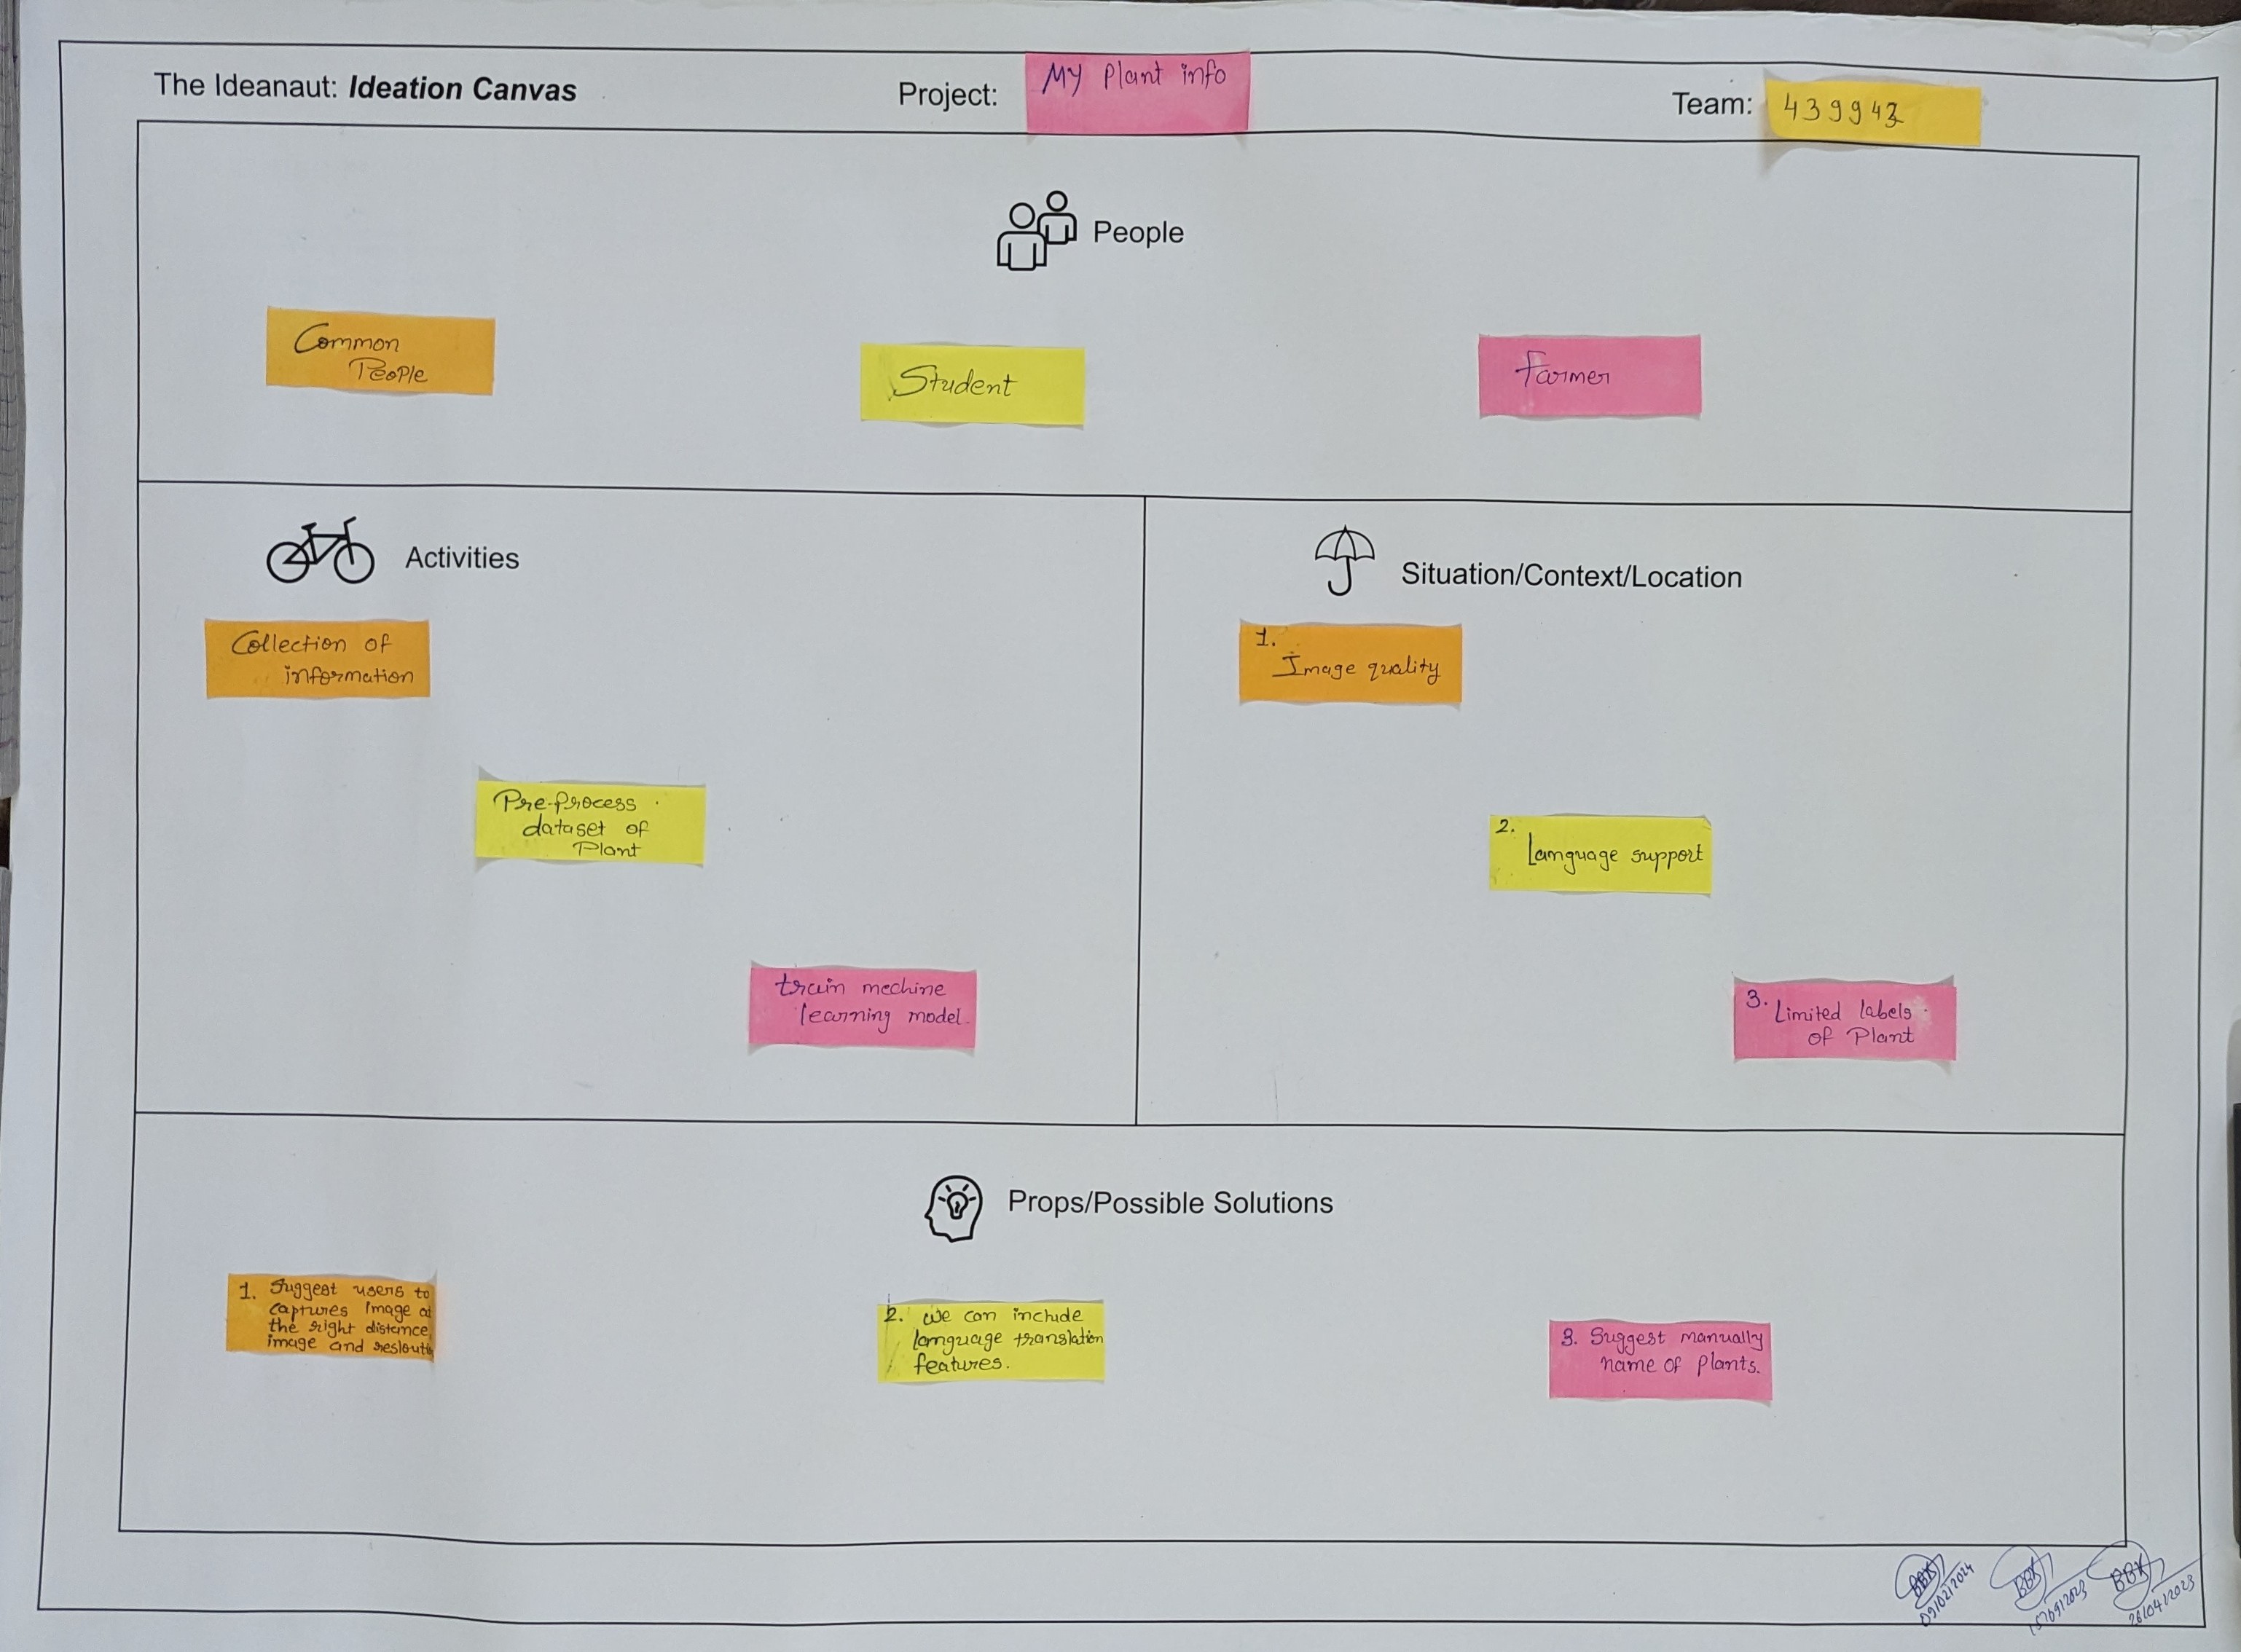 The Ideanaut: Ideation Canvas
Project:
My Plant info
Team:
People
Common
People
Student
Farmer
Activities
Collection of
information
Pre-process
dataset of
Plant
train mechine
learning model.
Situation/Context/Location
1.
Image quality
2.
Language support
3. Limited labels
of Plant
Props/Possible Solutions
1. Suggest users to
captures image at
the right distance,
image and
2. we can include
language translation
features.
3. Suggest manually
name of plants.
BBK
09/02/2024
BBK
15/09/2023
BBK
26/04/2023